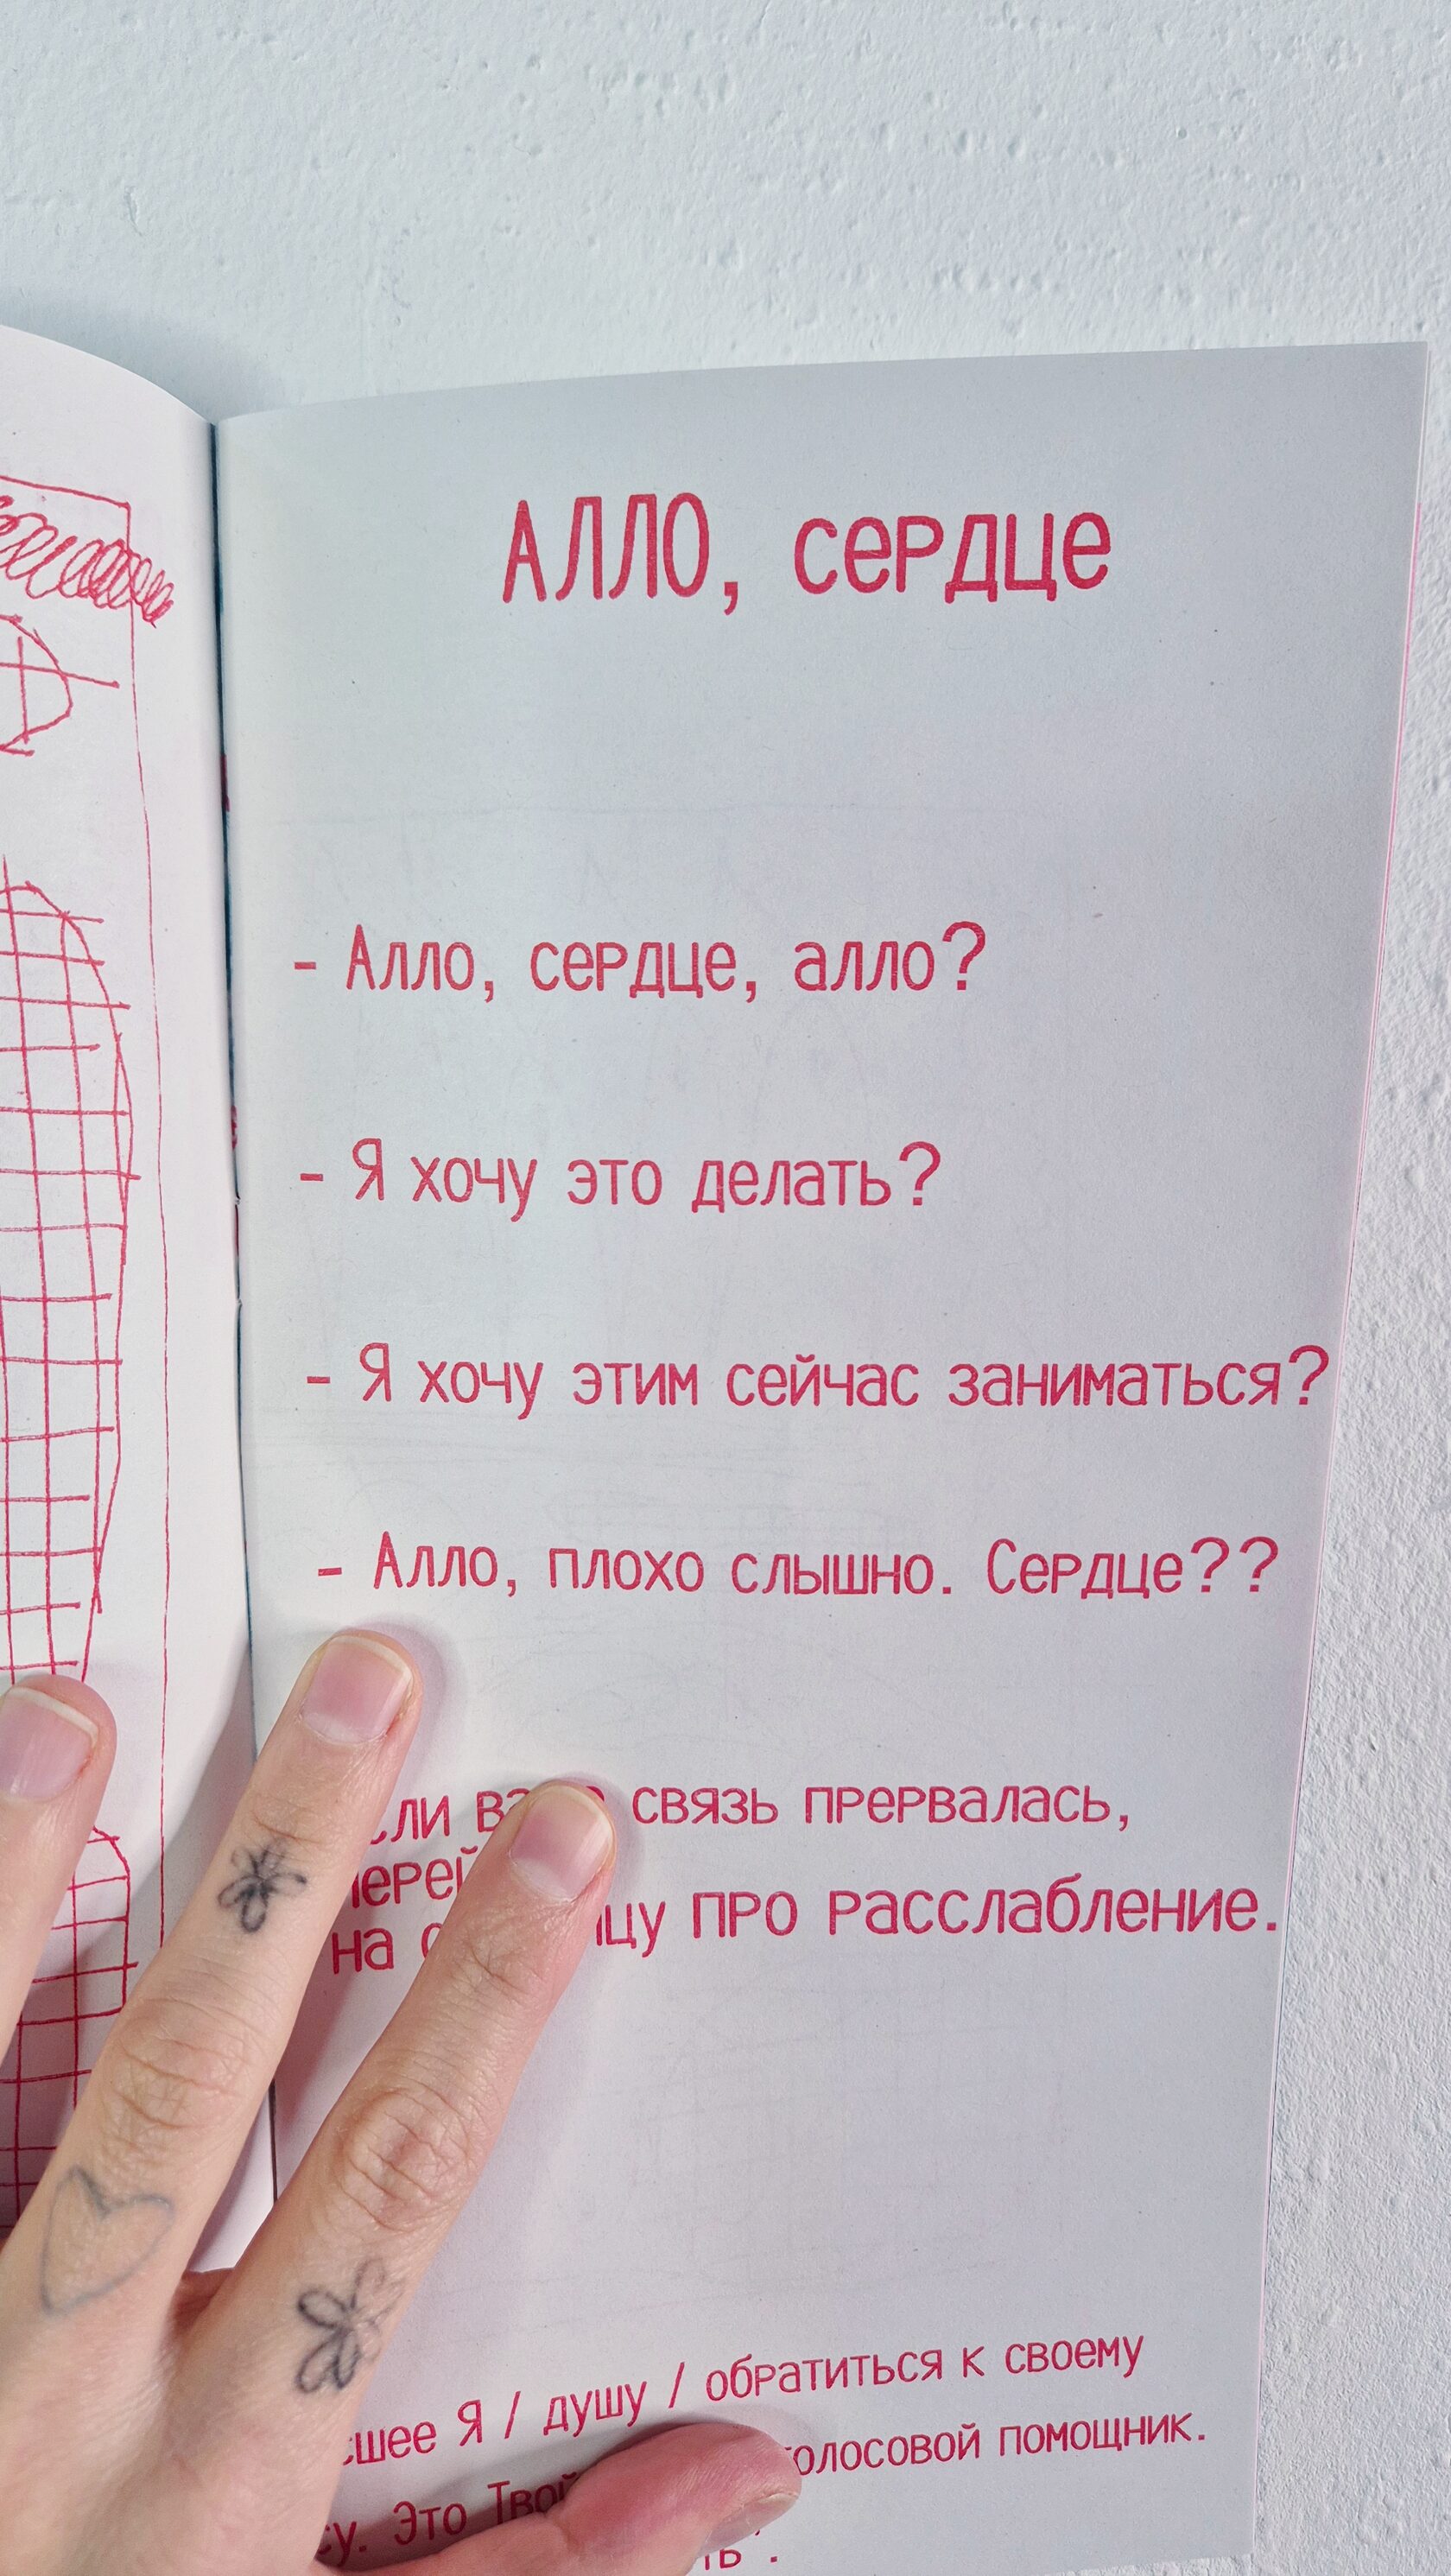 АЛЛО, сердце
- Алло, сердце, алло?
- Я хочу это делать?
- Я хочу этим сейчас заниматься?
- Алло, плохо слышно. Сердце??
связь прервалась,
на про расслабление.
Я / душу / обратиться к своему
помощник.
Это